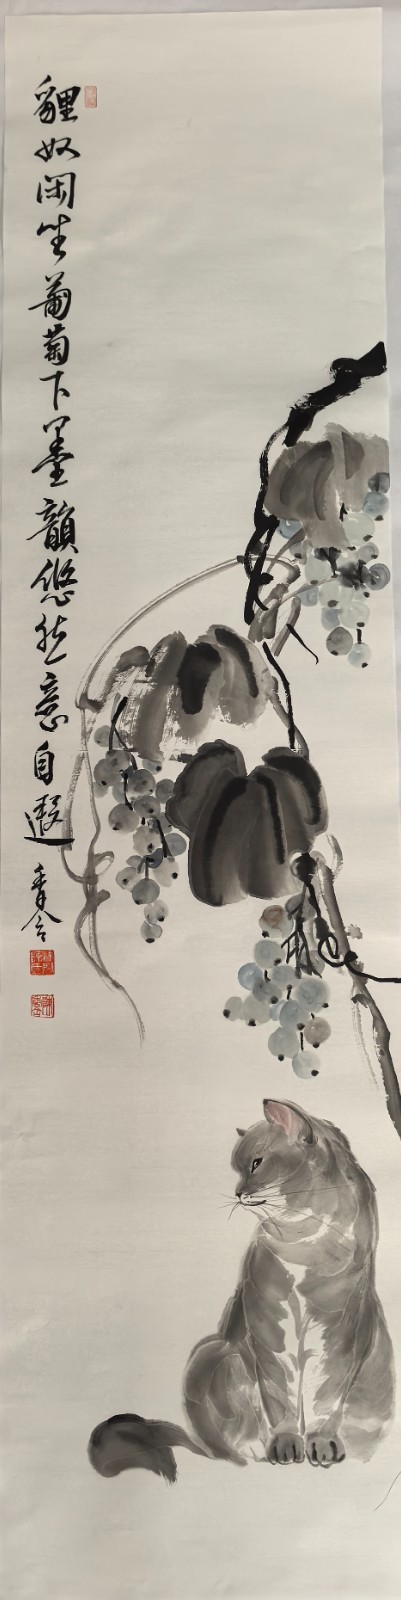 貍奴闲坐葡萄下墨韻悠然意自遐